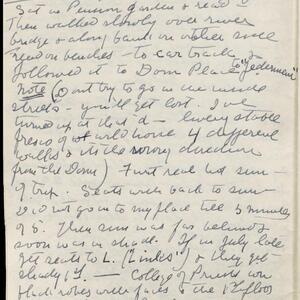 Sat in Pension garden & read
Then walked slowly over river
bridge & along bank on other side
read on benches – to car track &
followed it to Dom Place to "Jedermann"
Note (Dont try to go on the inside
streets – you'll get lost. I've
turned up at that'd – livery stable
fresco of wild horse & different
walks & its the wrong direction
from the Dom) First real hot sun
of trip. Seats with back to sun
did not go in to my place till 5 minutes
of 5. Then sun was far behind &
soon was in shade. If in July be
get seats to L. ("Links") & they get
shady 1st. – College of Priests in
black robes with faces & the 1st floor